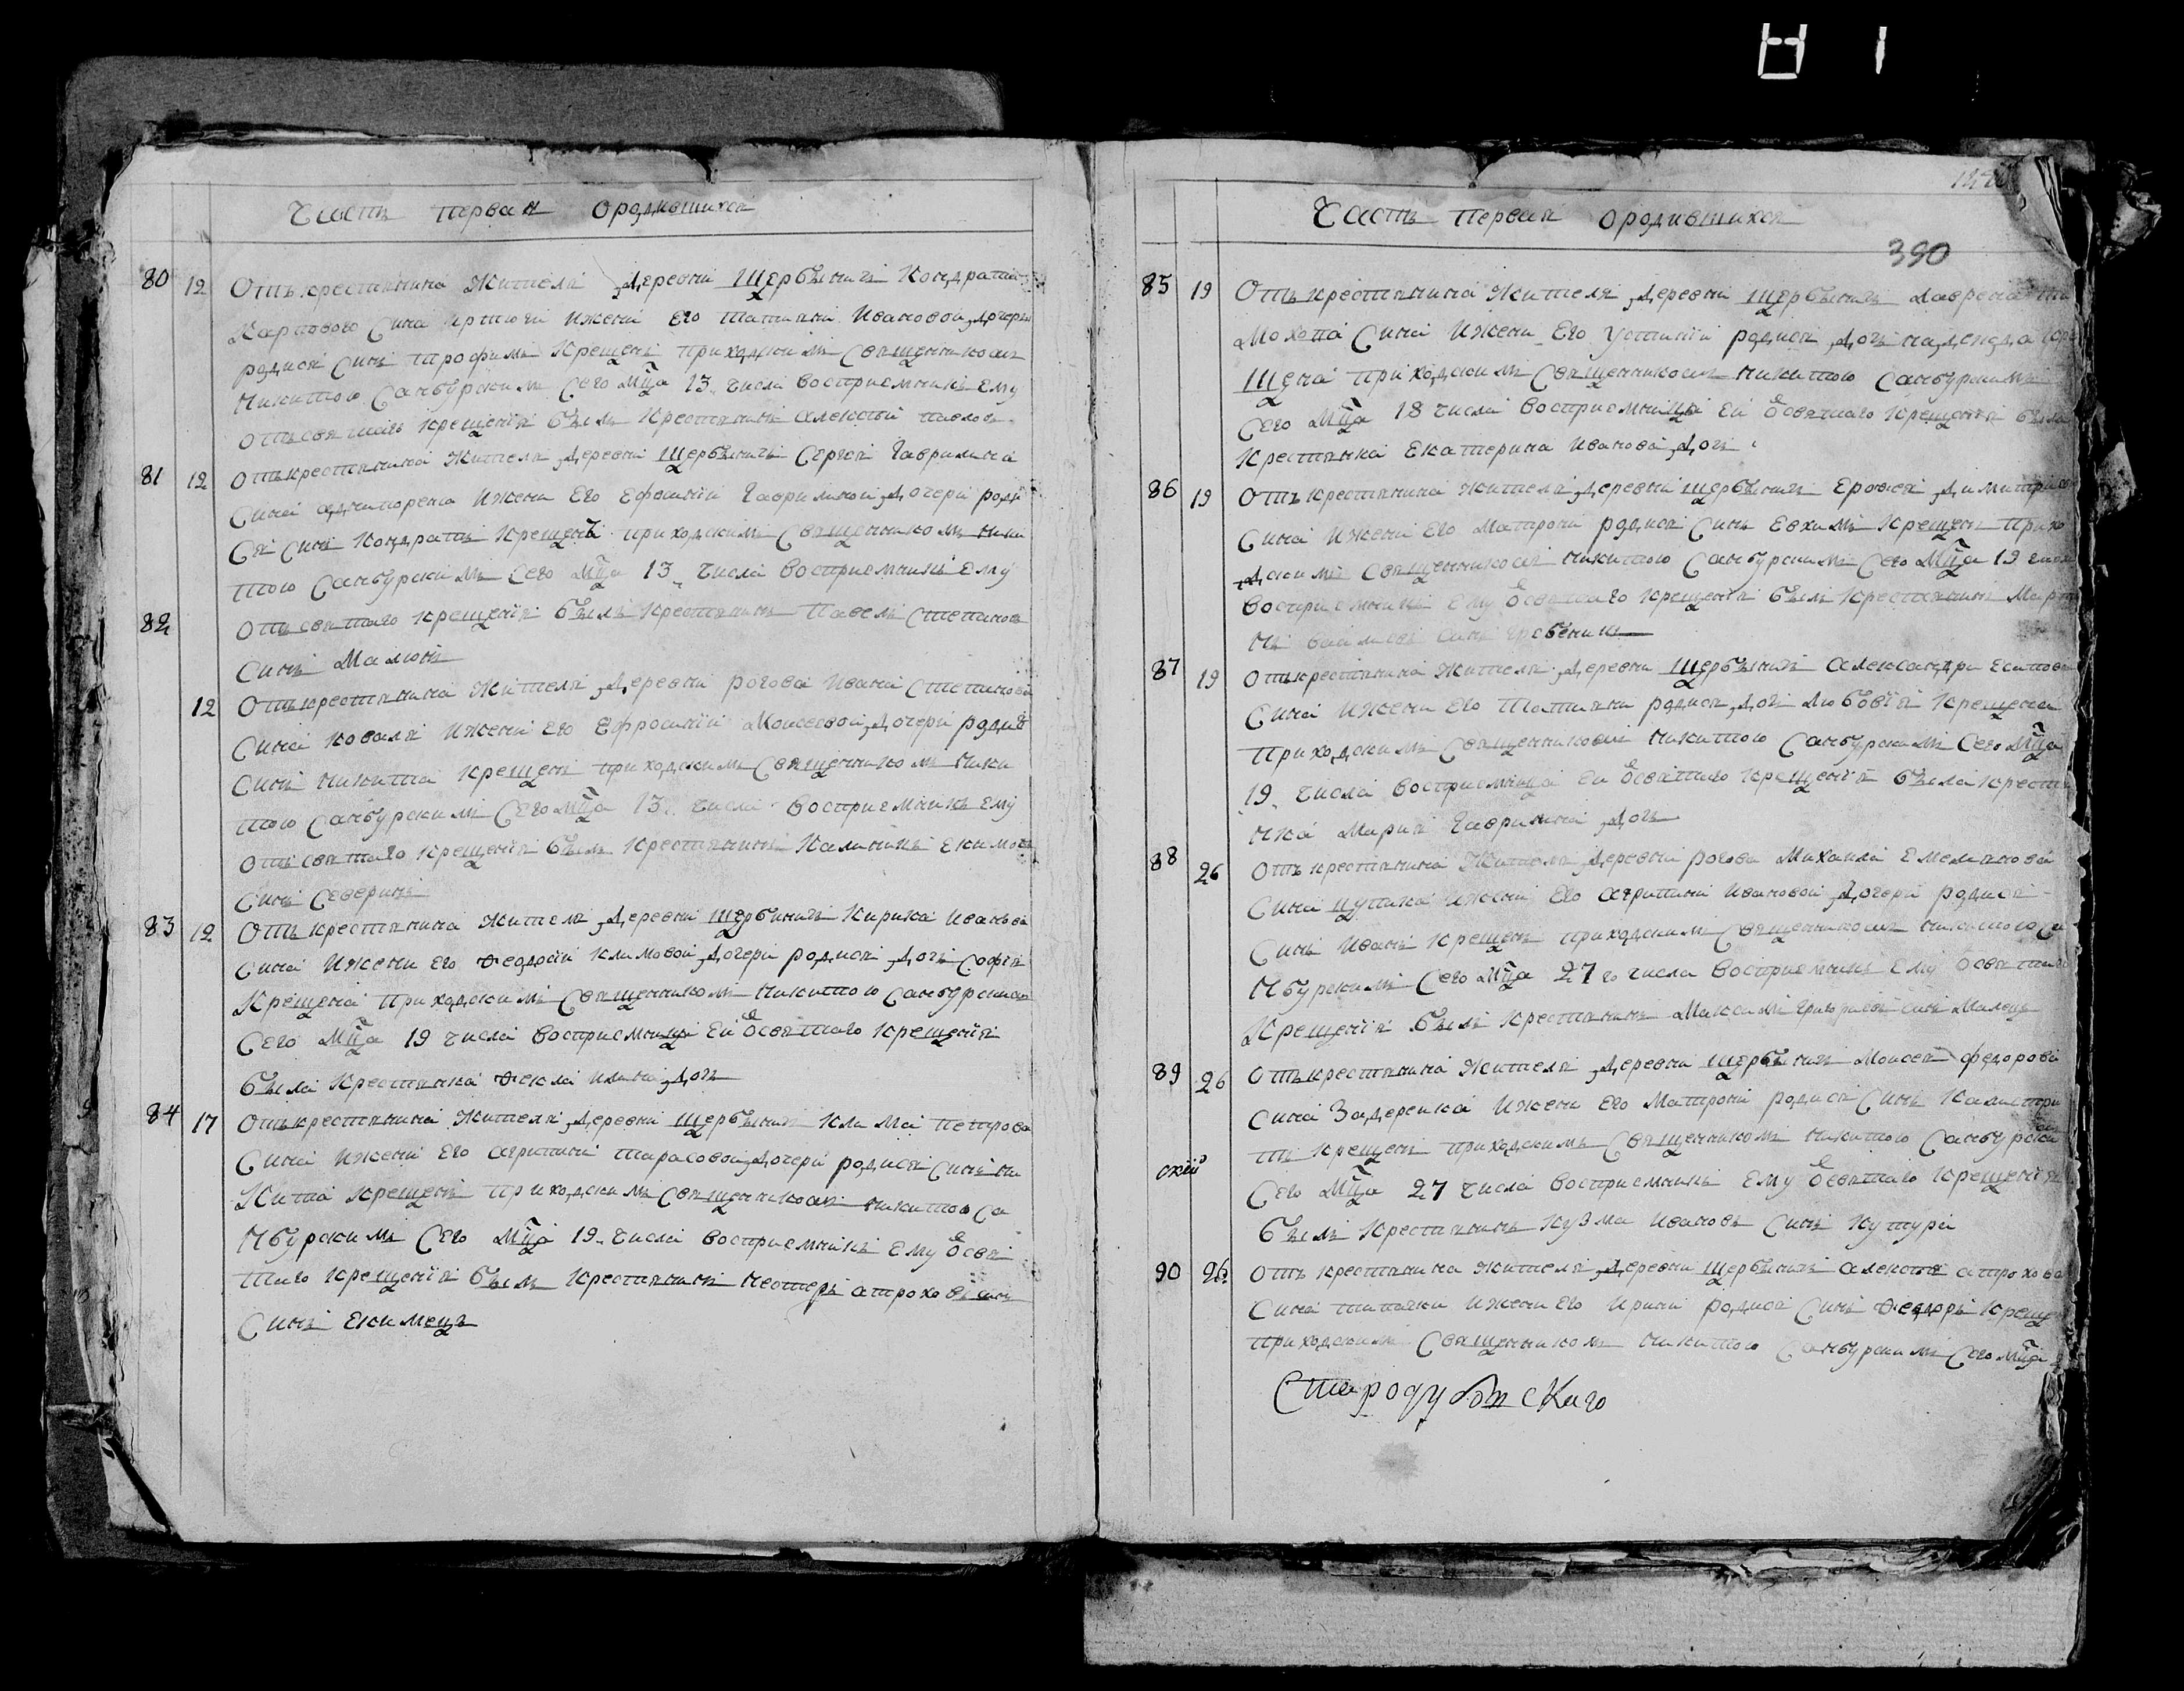 Часть первая ородившихся
80 12 Отъ крестянина жителя деревни Щербиничъ Кондратія
Карпового сина ижени его татяни Ивановой дочери
родися синъ трофимъ крещенъ приходскимъ священникомъ
никитою Самбурскимъ сего мца 13. числа восприемникъ ему
отъ святаго крещенія билъ крестянинъ алексѣй павловъ
81 12 Отъ крестянина жителя деревни щербиничъ Сергея Гаврилина
сина ижени его ефросиніи Гавриловой дочери роди
ся синъ Кондратъ крещенъ приходскимъ священникомъ ники
тою Самбурскимъ сего мца 13. числа восприемникъ ему
82 отъ святаго крещенія билъ крестянинъ павелъ степановъ
синъ Малюнъ
12 Отъ крестянина жителя деревни рогова ивана степанова
сина коваля ижени его Ефросиніи Моисеевой дочери родися
синъ никита крещенъ приходскимъ священникомъ ники
тою Самбурскимъ сего мца 13. числа восприемникъ ему
отъ святаго крещенія билъ крестянинъ Калиникъ екимовъ
синъ Северинъ
83 12 Отъ крестянина жителя деревни щербиничъ Кирика иванова
сина ижени его Ѳеодосіи климовой дочери родися дочь софія
крещена приходскимъ священникомъ никитою самбурскимъ
сего мца 19 числа восприемница ей ѿ святаго крещенія
била крестянка Ѳекла илина дочъ
84 17 Отъ крестянина жителя деревни щербиничъ клима петрова
сина ижени его агрипини тарасовой дочери родися синъ ни
кита крещенъ приходскимъ священникомъ никитою са
мбурскимъ сего мца 19. числа восприемникъ ему ѿ свя
таго крещенія билъ крестянинъ нестеръ атроховъ синъ
синъ екимецъ
Часть первая ородившихся
390
85 19 Отъ крестянина жителя деревни щербиничъ Лаврена
сина ижени его устиніи родися дочъ надежда кре
щена приходскимъ священникомъ никитою самбурскимъ
сего мца 18 числа восприемница ей ѿ святаго крещенія била
крестянка Екатерина иванова дочъ
86 19 Отъ крестянина жителя деревни щербиничъ ерофея димитриева
сина ижени его матрони родися синъ Евхимъ крещенъ прихо
дскимъ священникомъ никитою самбурскимъ сего мца 19 числа
восприемникъ ему ѿ святаго крещенія билъ крестянинъ Марти
нъ синъ гребеникъ
87 19 Отъ крестянина жителя деревни щербиничъ александра есипова
сина ижени его татяни родися дочъ любовія крещена
приходскимъ священникомъ никитою самбурскимъ сего мца
19. числа восприемница ей ѿ святаго крещенія била крестя
нка Марія Гаврилина дочъ
88 26 Отъ крестянина жителя деревни рогова Михаила Емелянова
сина цупика ижени его агрипини ивановой дочери родися
синъ иванъ крещенъ приходскимъ священникомъ никитою са
мбурскимъ сего мца 27 го числа восприемникъ ему ѿ святаго
крещенія билъ крестянинъ Максимъ григориевъ синъ Малецъ
89 26 Отъ крестянина жителя деревни щербиничъ Моисея федорова
сина Задеренка ижени его матрони родися синъ Калистра
тъ крещенъ приходскимъ священникомъ никитою самбурски
скій сего мца 27 числа восприемникъ ему ѿ святаго крещенія
билъ крестянинъ кузма ивановъ синъ кутура
90 26 Отъ крестянина жителя деревни щербиничъ алексея атрохова
сина ижени его ирини родися синъ Ѳеодоръ креще
приходскимъ священникомъ никитою самбурскимъ сего мца
Стародубскаго